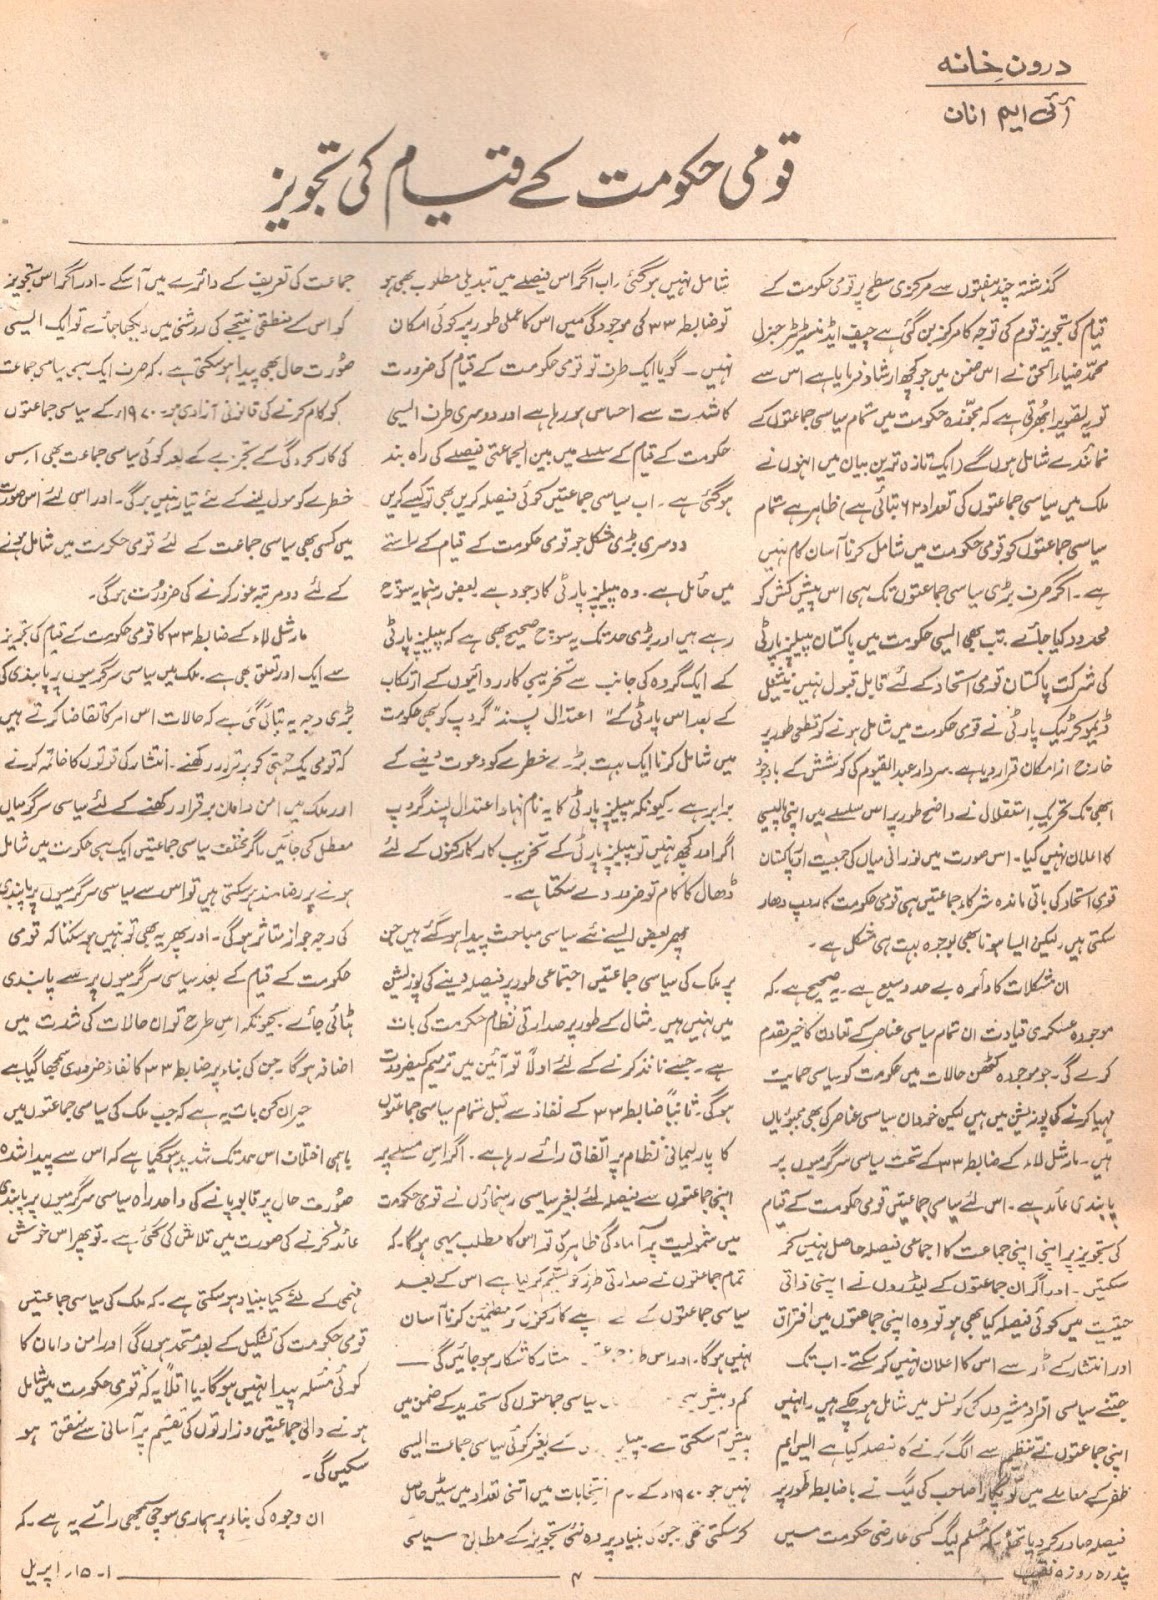 درونِ خانہ
آئی ایم انان
قومی حکومت کے قیام کی تجویز
گذشتہ چند ہفتوں سے مرکزی سطح پر قومی حکومت کے
قیام کی تجویز قوم کی توجہ کا مرکز بن گئی ہے چیف ایڈمنسٹریٹر جنرل
محمد ضیاء الحق نے اس ضمن میں جو کچھ ارشاد فرمایا ہے اس سے
تو یہ تصویر ابھرتی ہے کہ مجوزہ حکومت میں تمام سیاسی جماعتوں کے
نمائندے شامل ہوں گے (ایک تازہ ترین بیان میں انہوں نے
ملک میں سیاسی جماعتوں کی تعداد ۶۲ بتائی ہے) ظاہر ہے تمام
سیاسی جماعتوں کو قومی حکومت میں شامل کرنا آسان کام نہیں
ہے۔ اگر صرف بڑی سیاسی جماعتوں تک ہی اس پیش کش کو
محدود کیا جائے۔ تب بھی ایسی حکومت میں پاکستان پیپلز پارٹی
کی شرکت پاکستان قومی اتحاد کے لئے قابل قبول نہیں۔ نیشنل
ڈیموکریٹک پارٹی نے قومی حکومت میں شامل ہونے کو قطعی طور پر
خارج از امکان قرار دیا ہے۔ سردار عبدالقیوم کی کوشش کے باوجود
ابھی تک تحریکِ استقلال نے واضح طور پر اس سلسلے میں اپنی پالیسی
کا اعلان نہیں کیا۔ اس صورت میں نورانی میاں کی جمعیت اور پاکستان
قومی اتحاد کی باقی ماندہ شرکاء جماعتیں ہی قومی حکومت کا روپ دھار
سکتی ہیں۔ لیکن ایسا ہونا بھی بوجوہ بہت ہی مشکل ہے۔
ان مشکلات کا دائرہ بے حد وسیع ہے۔ یہ صحیح ہے کہ
موجودہ عسکری قیادت ان تمام سیاسی عناصر کے تعاون کا خیر مقدم
کرے گی۔ جو موجودہ کٹھن حالات میں حکومت کو سیاسی حمایت
مہیا کرنے کی پوزیشن میں ہیں لیکن خود ان سیاسی عناصر کی بھی مجبوریاں
ہیں۔ مارشل لاء کے ضابطہ ۳۳ کے تحت سیاسی سرگرمیوں پر
پابندی عائد ہے۔ اس لئے سیاسی جماعتیں قومی حکومت کے قیام
کی تجویز پر اپنی اپنی جماعت کا اجماعی فیصلہ حاصل نہیں کر
سکتیں۔ اور اگر ان جماعتوں کے لیڈروں نے اپنی ذاتی
حیثیت میں کوئی فیصلہ کیا بھی ہو تو وہ اپنی جماعتوں میں افتراق
اور انتشار کے ڈر سے اس کا اعلان نہیں کر سکتے۔ اب تک
جتنے سیاسی افراد مشیروں کی کونسل میں شامل ہو چکے ہیں۔ انہیں
اپنی جماعتوں نے تنظیم سے الگ کرنے کا فیصلہ کیا ہے ایس ایم
ظفر کے معاملے میں تو پگاڑا صاحب کی لیگ نے باضابطہ طور پر
فیصلہ صادر کر دیا تھا کہ مسلم لیگ کسی عارضی حکومت میں
شامل نہیں ہو گی، اب اگر اس فیصلے میں تبدیلی مطلوب بھی ہو
تو ضابطہ ۳۳ کی موجودگی میں اس کا عملی طور پر کوئی امکان
نہیں۔ گویا ایک طرف تو قومی حکومت کے قیام کی ضرورت
کا شدت سے احساس ہو رہا ہے اور دوسری طرف ایسی
حکومت کے قیام کے سلسلے میں بین الجماعتی فیصلے کی راہ بند
ہو گئی ہے۔ اب سیاسی جماعتیں کوئی فیصلہ کریں بھی تو کیسے کریں
دوسری بڑی مشکل جو قومی حکومت کے قیام کے راستے
میں حائل ہے۔ وہ پیپلز پارٹی کا وجود ہے بعض رہنما یہ سوچ
رہے ہیں اور بڑی حد تک یہ سوچ صحیح بھی ہے کہ پیپلز پارٹی
کے ایک گروہ کی جانب سے تخریبی کارروائیوں کے ارتکاب
کے بعد اس پارٹی کے "اعتدال پسند" گروپ کو بھی حکومت
میں شامل کرنا ایک بہت بڑے خطرے کو دعوت دینے کے
برابر ہے۔ کیونکہ پیپلز پارٹی کا یہ نام نہاد اعتدال پسند گروپ
اگر اور کچھ نہیں تو پیپلز پارٹی کے تخریب کار کارکنوں کے لئے
ڈھال کا کام تو ضرور دے سکتا ہے۔
پھر بعض ایسے نئے سیاسی مباحث پیدا ہو گئے ہیں جن
پر ملک کی سیاسی جماعتیں اجتماعی طور پر فیصلہ دینے کی پوزیشن
میں نہیں ہیں۔ مثال کے طور پر صدارتی نظام حکومت کی بات
ہے۔ جسے نافذ کرنے کے لئے اولاً تو آئین میں ترمیم کی ضرورت
ہو گی۔ ثانیاً ضابطہ ۳۳ کے نفاذ سے قبل تمام سیاسی جماعتوں
کا پارلیمانی نظام پر اتفاق رائے رہا ہے۔ اگر اس مسئلے پر
اپنی جماعتوں سے فیصلہ لئے بغیر سیاسی رہنماؤں نے قومی حکومت
میں شمولیت پر آمادگی ظاہر کی تو اس کا مطلب یہی ہو گا۔ کہ
تمام جماعتوں نے صدارتی طرز کو تسلیم کر لیا ہے اس کے بعد
سیاسی جماعتوں کے لئے اپنے کارکنوں کو مطمئن کرنا آسان
نہیں ہو گا۔ اور اس طرح انتشار کا شکار ہو جائیں گی۔
کم و بیش سیاسی جماعتوں کی تحدید کے ضمن میں
پیش آ سکتی ہے۔ پیپلز کے بغیر کوئی سیاسی جماعت ایسی
نہیں جو ۱۹۷۰ء کے عام انتخابات میں اتنی تعداد میں سیٹیں حاصل
کر سکتی تھی جن کی بنیاد پر وہ نئی تجویز کے مطابق سیاسی
جماعت کی تعریف کے دائرے میں آ سکے۔ اور اگر اس تجویز
کو اس کے منطقی نتیجے کی روشنی میں دیکھا جائے تو ایک ایسی
صورت حال بھی پیدا ہو سکتی ہے۔ کہ صرف ایک ہی سیاسی جماعت
کو کام کرنے کی قانونی آزادی ہو۔ ۱۹۷۰ء کے سیاسی جماعتوں
کی کارکردگی کے تجزیے کے بعد کوئی سیاسی جماعت بھی اس
خطرے کو مول لینے کے لئے تیار نہیں ہو گی۔ اور اس لئے اس صورت
میں کسی بھی سیاسی جماعت کے لئے قومی حکومت میں شامل ہونے
کے لئے دو مرتبہ غور کرنے کی ضرورت ہو گی۔
مارشل لاء کے ضابطہ ۳۳ کا قومی حکومت کے قیام کی تجویز
سے ایک اور تعلق بھی ہے۔ ملک میں سیاسی سرگرمیوں پر پابندی کی
بڑی وجہ یہ بتائی گئی ہے کہ حالات اس امر کا تقاضا کرتے ہیں
کہ قومی یک جہتی کو برقرار رکھنے۔ انتشار کی قوتوں کا خاتمہ کرنے
اور ملک میں امن و امان برقرار رکھنے کے لئے سیاسی سرگرمیاں
معطل کی جائیں۔ اگر مختلف سیاسی جماعتیں ایک ہی حکومت میں شامل
ہونے پر رضامند ہو سکتی ہیں تو اس سے سیاسی سرگرمیوں پر پابندی
کی وجہ جواز متاثر ہو گی۔ اور پھر یہ بھی تو نہیں ہو سکتا کہ قومی
حکومت کے قیام کے بعد سیاسی سرگرمیوں پر سے پابندی
ہٹائی جائے۔ کیونکہ اس طرح تو ان حالات کی شدت میں
اضافہ ہو گا۔ جن کی بناء پر ضابطہ ۳۳ کا نفاذ ضروری سمجھا گیا ہے
حیران کن بات یہ ہے کہ جب ملک کی سیاسی جماعتوں میں
باہمی اختلاف اس حد تک شدید ہو گیا ہے کہ اس سے پیدا شدہ
صورت حال پر قابو پانے کی واحد راہ سیاسی سرگرمیوں پر پابندی
عائد کرنے کی صورت میں تلاش کی گئی ہے۔ تو پھر اس خوش
فہمی کے لئے کیا بنیاد ہو سکتی ہے۔ کہ ملک کی سیاسی جماعتیں
قومی حکومت کی تشکیل کے بعد متحد ہوں گی اور امن و امان کا
کوئی مسئلہ پیدا نہیں ہو گا۔ یا اقلاً یہ کہ قومی حکومت میں شامل
ہونے والی جماعتیں وزارتوں کی تقسیم پر آسانی سے متفق ہو
سکیں گی۔
ان وجوہ کی بناء پر ہماری سوچی سمجھی رائے یہ ہے۔ کہ
پندرہ روزہ نقیب
۴
۱۔۱۵ اپریل